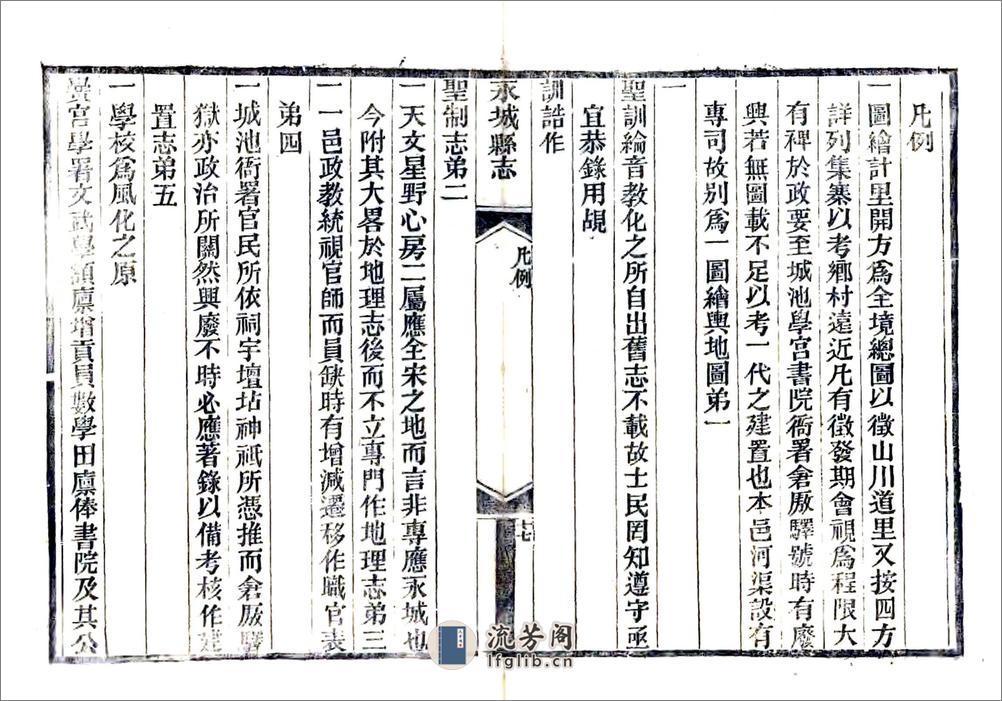 凡例
一圖繪計里開方爲全境總圖以徵山川道里又按四方
詳列集寨以考鄉村遠近凡有徵發期會視爲程限大
有裨於政要至城池學宮書院衙署倉厫驛號時有廢
興若無圖載不足以考一代之建置也本邑河渠設有
專司故別爲一圖繪輿地圖弟一
一
聖訓綸音教化之所自出舊志不載故士民罔知遵守亟
宜恭錄用覘
訓誥作
永城縣志
凡例
聖制志弟二
一天文星野心房二屬應全宋之地而言非專應永城也
今附其大畧於地理志後而不立專門作地理志弟三
一一邑政教統視官師而員缺時有增減遷移作職官表
弟四
一城池衙署官民所依祠宇壇坫神祇所憑推而倉厫驛
獄亦政治所關然興廢不時必應著錄以備考核作建
置志弟五
一學校爲風化之原
黌宮學署文武學額廪增貢員數學田廪俸書院及其公
流芳阁
lfglib.cn